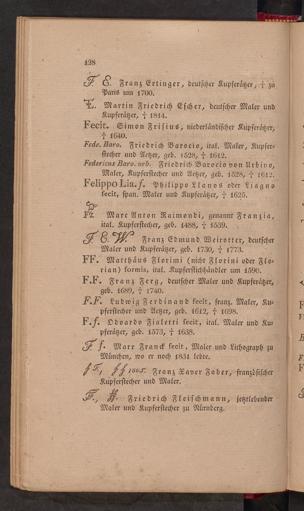 428
F. E. Franz Ertinger, deutscher Kupferätzer, † zu
Paris um 1700.
E. Martin Friedrich Escher, deutscher Maler und
Kupferätzer, † 1814.
Fecit. Simon Frisius, niederländischer Kupferätzer,
† 1640.
Fede. Baro. Friedrich Barocio, ital. Maler, Kupfer-
stecher und Aetzer, geb. 1528, † 1612.
Federicus Baro. urb. Friedrich Barocio von Urbino,
Maler, Kupferstecher und Aetzer, geb. 1528, † 1612.
Felippo Liu. f. Philippo Llanos oder Liagno
fecit, span. Maler und Kupferätzer, † 1625.
Fz. Marc Anton Raimondi, genannt Franzia,
ital. Kupferstecher, geb. 1488, † 1539.
F. E. W. Franz Edmund Weirotter, deutscher
Maler und Kupferätzer, geb. 1730, † 1773.
FF. Matthäus Florimi (nicht Florini oder Flo-
rian) formis, ital. Kupferstichhändler um 1590.
F.F. Franz Ferg, deutscher Maler und Kupferätzer,
geb. 1689, † 1740.
F.F. Ludwig Ferdinand fecit, franz. Maler, Ku-
pferstecher und Aetzer, geb. 1612, † 1698.
F.f. Odoardo Fialetti fecit, ital. Maler und Ku-
pferätzer, geb. 1573, † 1638.
F. f. Marc Franck fecit, Maler und Lithograph zu
München, wo er noch 1834 lebte.
Franz Xaver Faber, französischer
Kupferstecher und Maler.
Friedrich Fleischmann, jetztlebender
Maler und Kupferstecher zu Nürnberg.